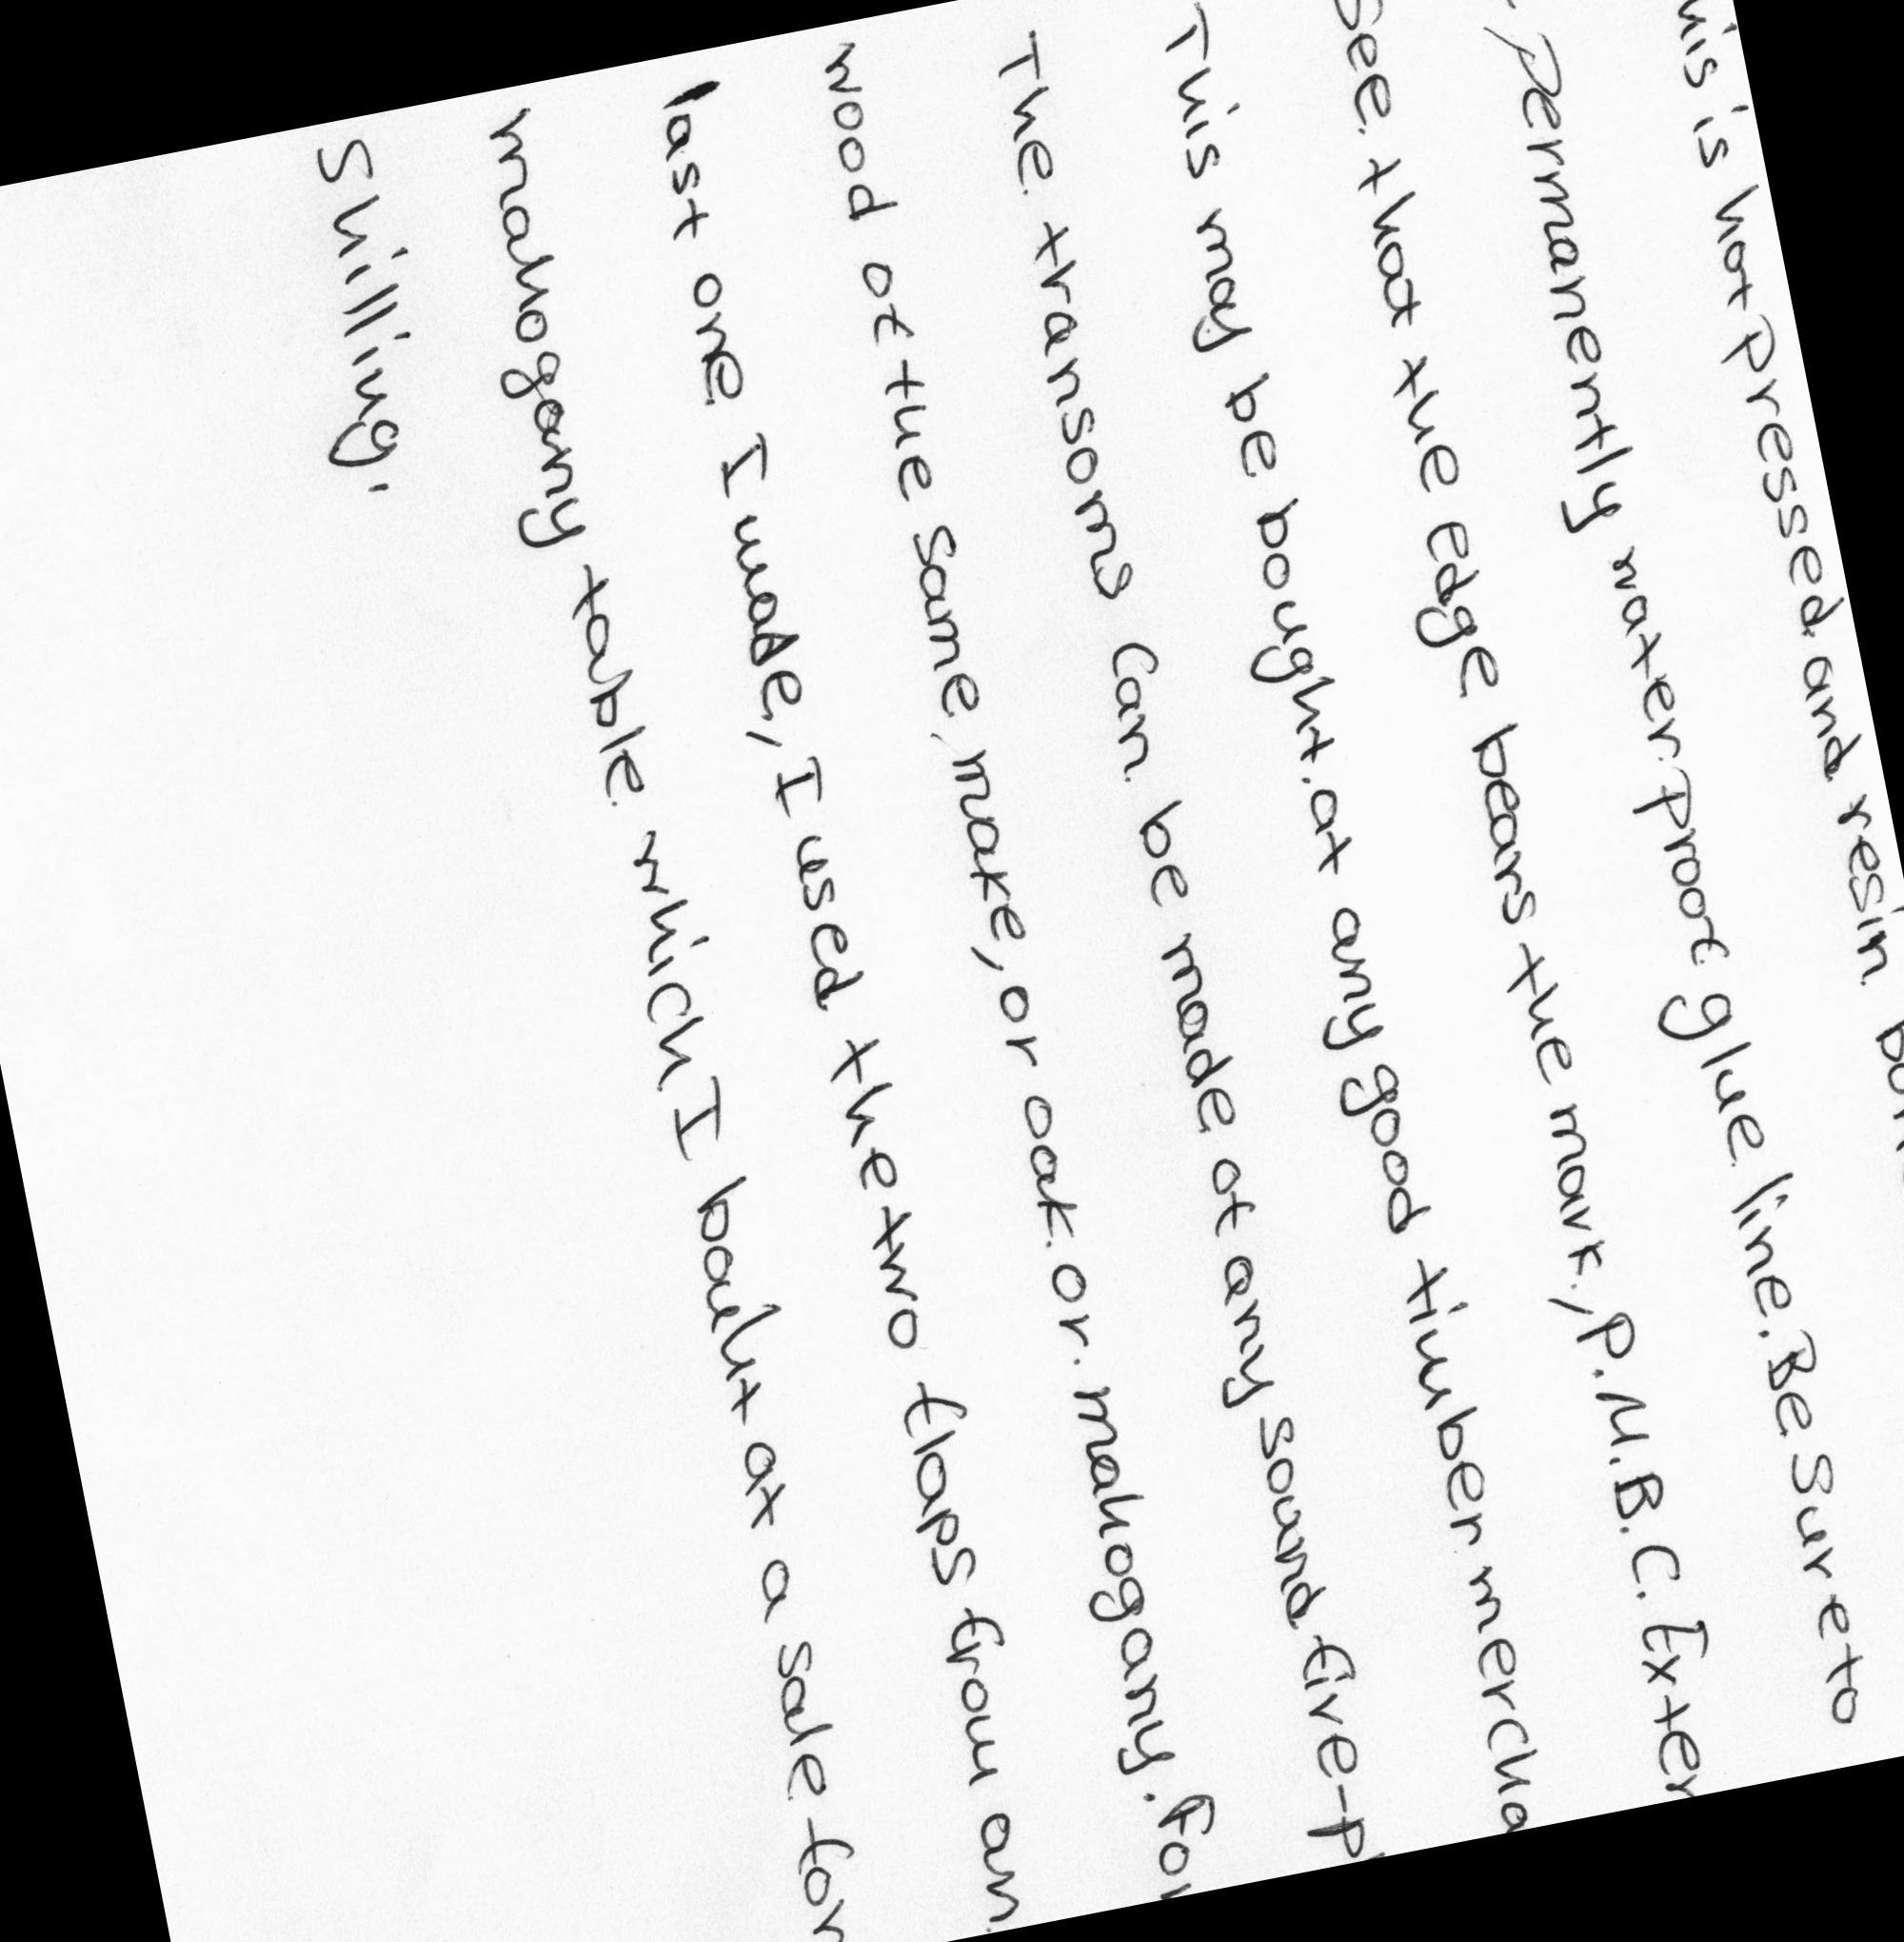 is is hot pressed and resin
permanently water proof glue line. Be Sure to
See that the Edge bears the mark, P.M.B.C. Exter
This may be bought at any good timber mercha
The transoms Can be made of any sound five-p
wood of the same make, or oak or mahogany. For
last one I made, I used the two flaps from an
mahogany table which I bouht at a sale for
Shilling.